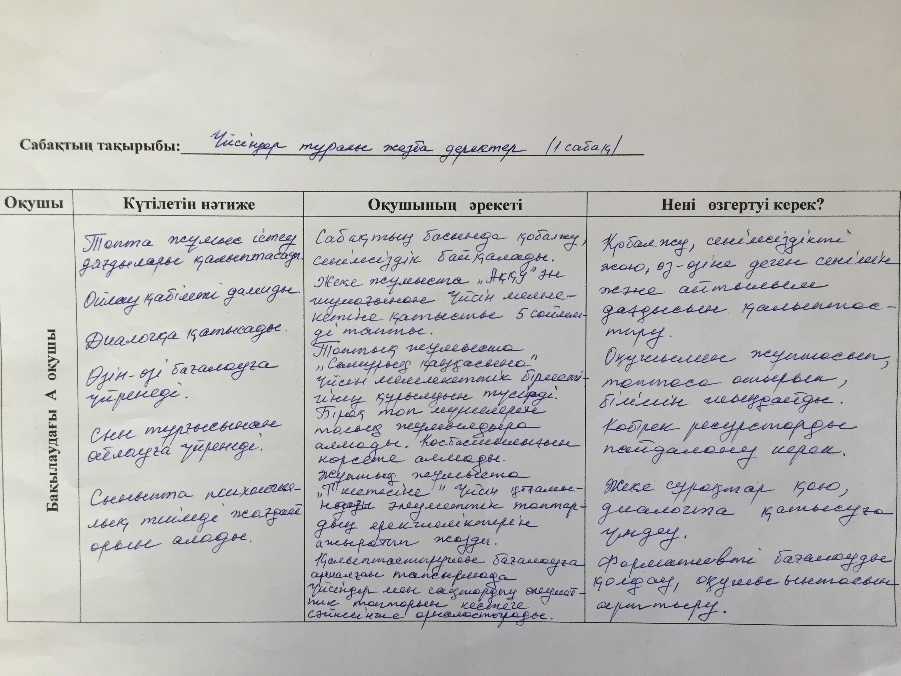 Сабақтың тақырыбы: Үйсіндер туралы жазба деректер /1 сабақ/
Оқушы
Күтілетін нәтиже
Оқушының әрекеті
Нені өзгертуі керек?
Бақылаудағы А оқушы
Топта жұмыс істеу
дағдылары қалыптасады.
Ойлау қабілеті дамиды.
Диалогқа қатысады.
Өзін-өзі бағалауға
үйренеді.
Сын тұрғысынан
ойлауға үйренеді.
Сыныпта психология-
лық тиімді жағдай
орын алады.
Сабақтың басында қобалжу,
сенімсіздік байқалады.
Жеке жұмыста „Аққу" ән
шумағынан Үйсін мемле-
кетіне қатысты 5 сөйлем-
ді тапты.
Топтық жұмыста
Үйсін мемлекеттік бірлесті-
гінің құрылымын түсірді.
Бірақ топ мүшелерін
толық жұмылдыра
алмады. Көшбасшылығын
көрсете алмады.
Жұптық жұмыста
Үйсін қоғамын-
дағы әлеуметтік топтар-
дың ерекшеліктерін
ажыратып жазды.
Қалыптастырушы бағалауға
арналған тапсырмада
Үйсіндер мен сақтардың әлеумет-
тік топтарын кестеге
сәйкесінше орналастырады.
Қобалжу, сенімсіздікті
жою, өз-өзіне деген сенімін
және айтылым
дағдысын қалыптас-
тыру.
Оқушымен жұптасып,
топтаса отырып,
білімін шыңдайды.
Көбірек ресурстарды
пайдалану керек.
Жеке сұрақтар қою,
диалогта қатысуға
үндеу.
Формативті бағалауды
қолдау, оқушы ынтасын
арттыру.